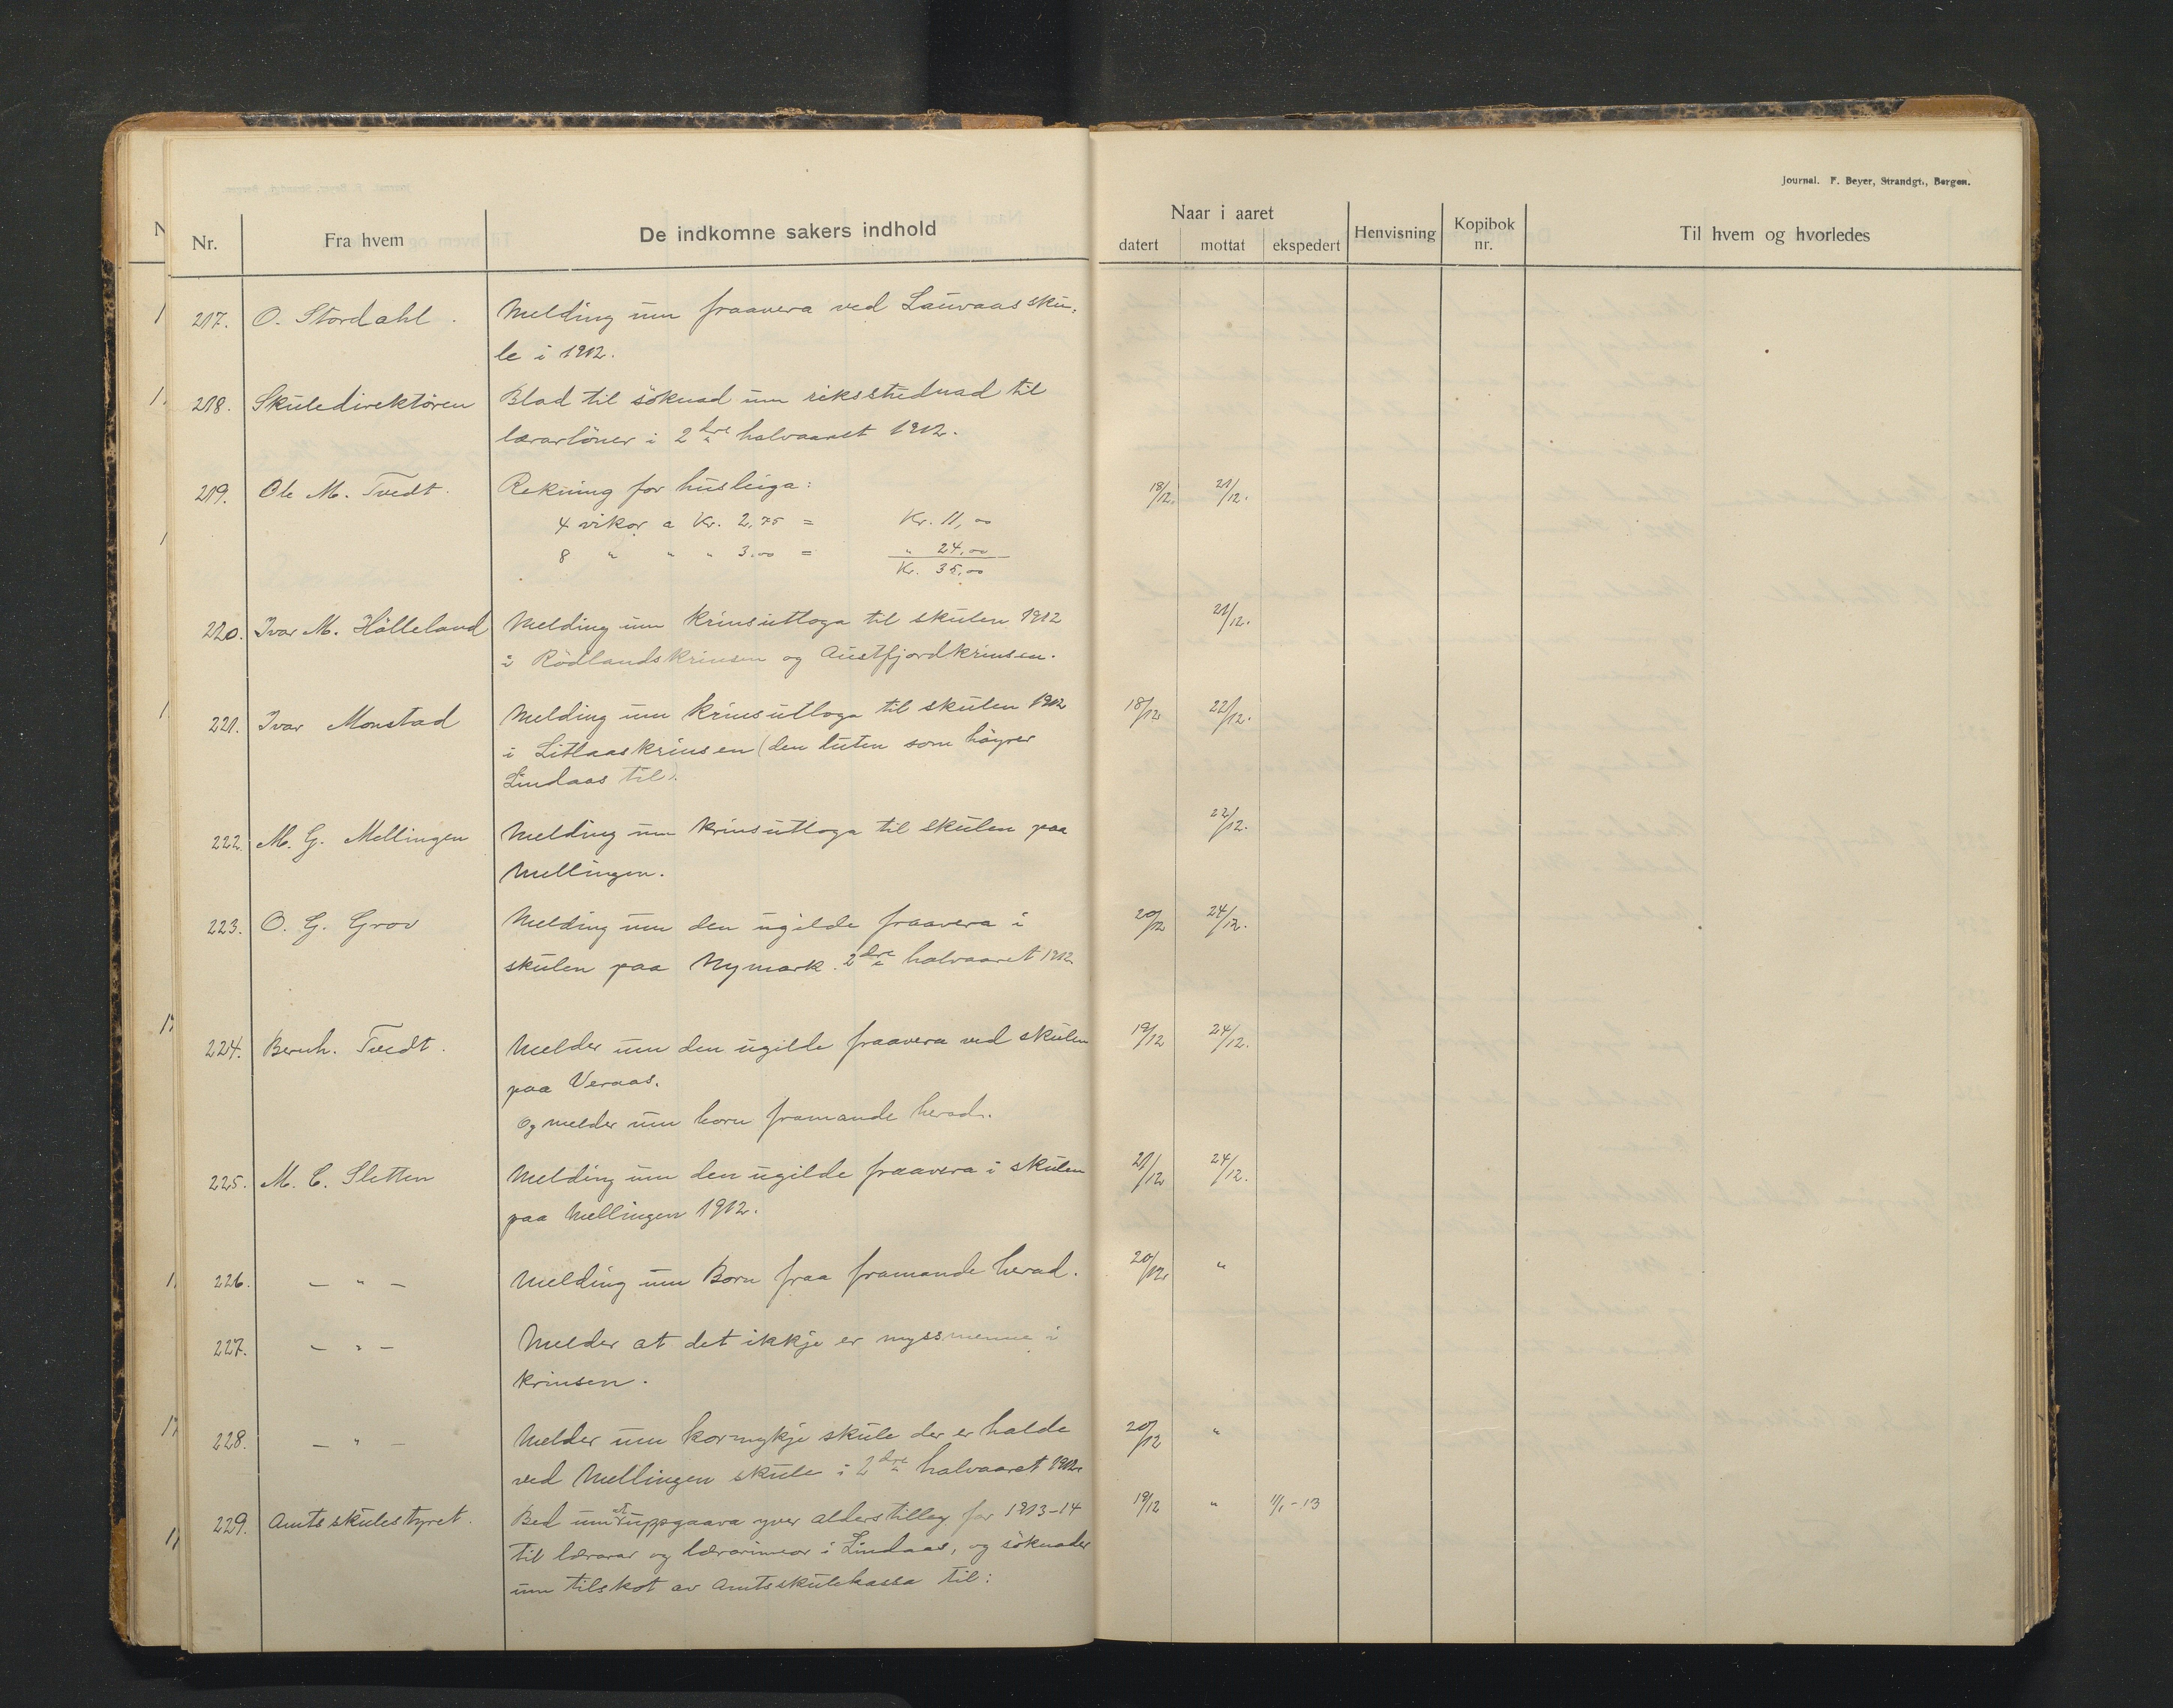 Journal. F. Beyer, Strandgt., Bergen.
Nr. Fra hvem De indkomne sakers indhold Naar i aaret Henvisning Kopibok nr. Til hvem og hvorledes
datert mottat ekspedert
217. O. Stordahl. Melding um fraavera ved Lauvaas sku-
le i 1912.
218. Skuledirektören Blad til söknad um riksstudnad til
lærarlöner i 2dre halvaaret 1912.
219. Ole M. Tvedt. Rekning for husleiga: 18/12. 21/12.
4 vikor a Kr. 2,75 = Kr. 11,00
8 " " " 3.00 = " 24,00
Kr. 35,00
220. Ivar M. Hölleland Melding um krinsutloga til skulen 1912 21/12.
i Rödlandskrinsen og Austfjordkrinsen.
221. Ivar Monstad Melding um krinsutloga til skulen 1912 18/12 22/12.
i Litlaaskrinsen (den luten som höyrer
Lindaas til).
222. M. G. Mellingen Melding um krinsutloga til skulen paa 22/12.
Mellingen.
223. O. G. Grov Melding um den ugilde fraavera i 20/12 24/12.
skulen paa Nymark. 2dre halvaaret 1912
224. Bernh. Tvedt. Melder um den ugilde fraavera ved skulen 19/12 24/12.
paa Veraas.
Og melder um born framande herad.
225. M. C. Sletten Melding um den ugilde fraavera i skulen 21/12 24/12.
paa Mellingen 1912.
226. — " — Melding um Born fraa framande herad. 20/12. "
227. — " — Melder at det ikkje er myssmenne i
krinsen.
228. — " — Melder um kormykje skule der er halde 20/12 "
ved Mellingen skule i 2dre halvaaret 1912.
229. Amtsskulestyret. Bed um uppgaava yver alderstillegg for 1913-14 19/12 " 11/1-13
til lærarar og lærarinnor i Lindaas, og söknader
um tilskot av Amtsskulekassa til: